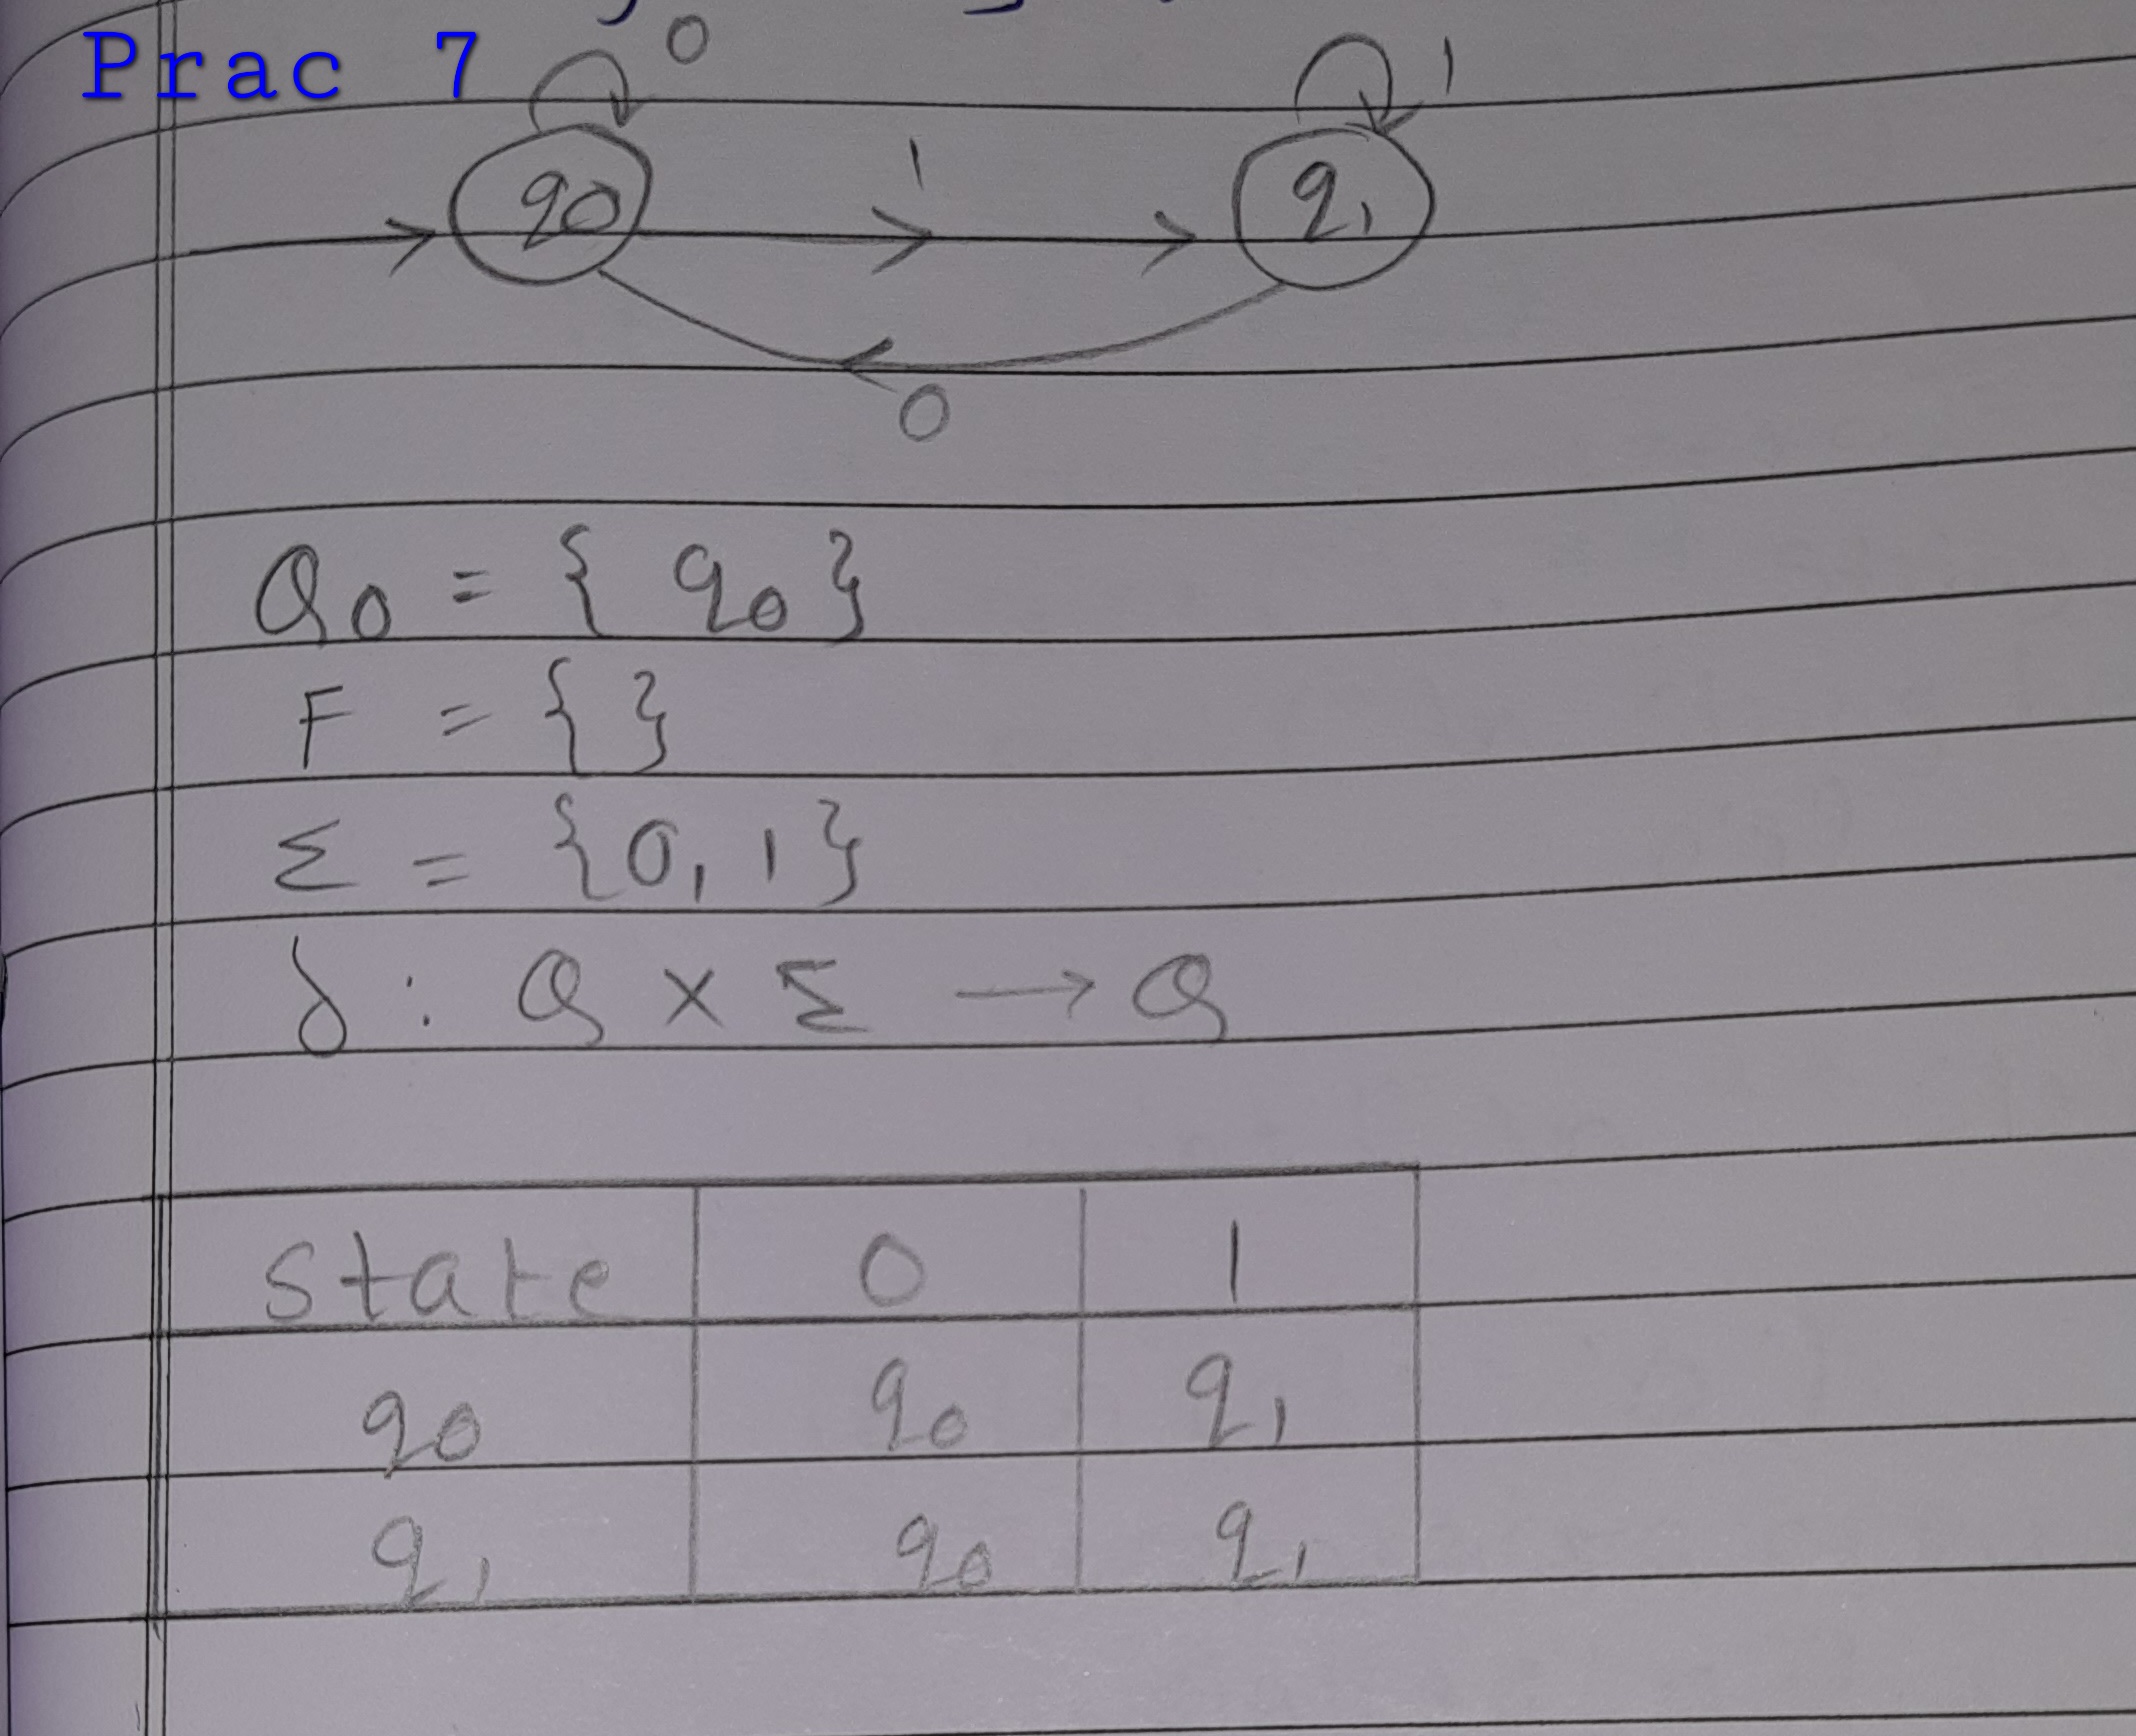 Prac 7
0 1
q0 1 q1
0
Q0 = { q0 }
F = { }
Σ = {0, 1}
δ : Q × Σ → Q
state 0 1
q0 q0 q1
q1 q0 q1